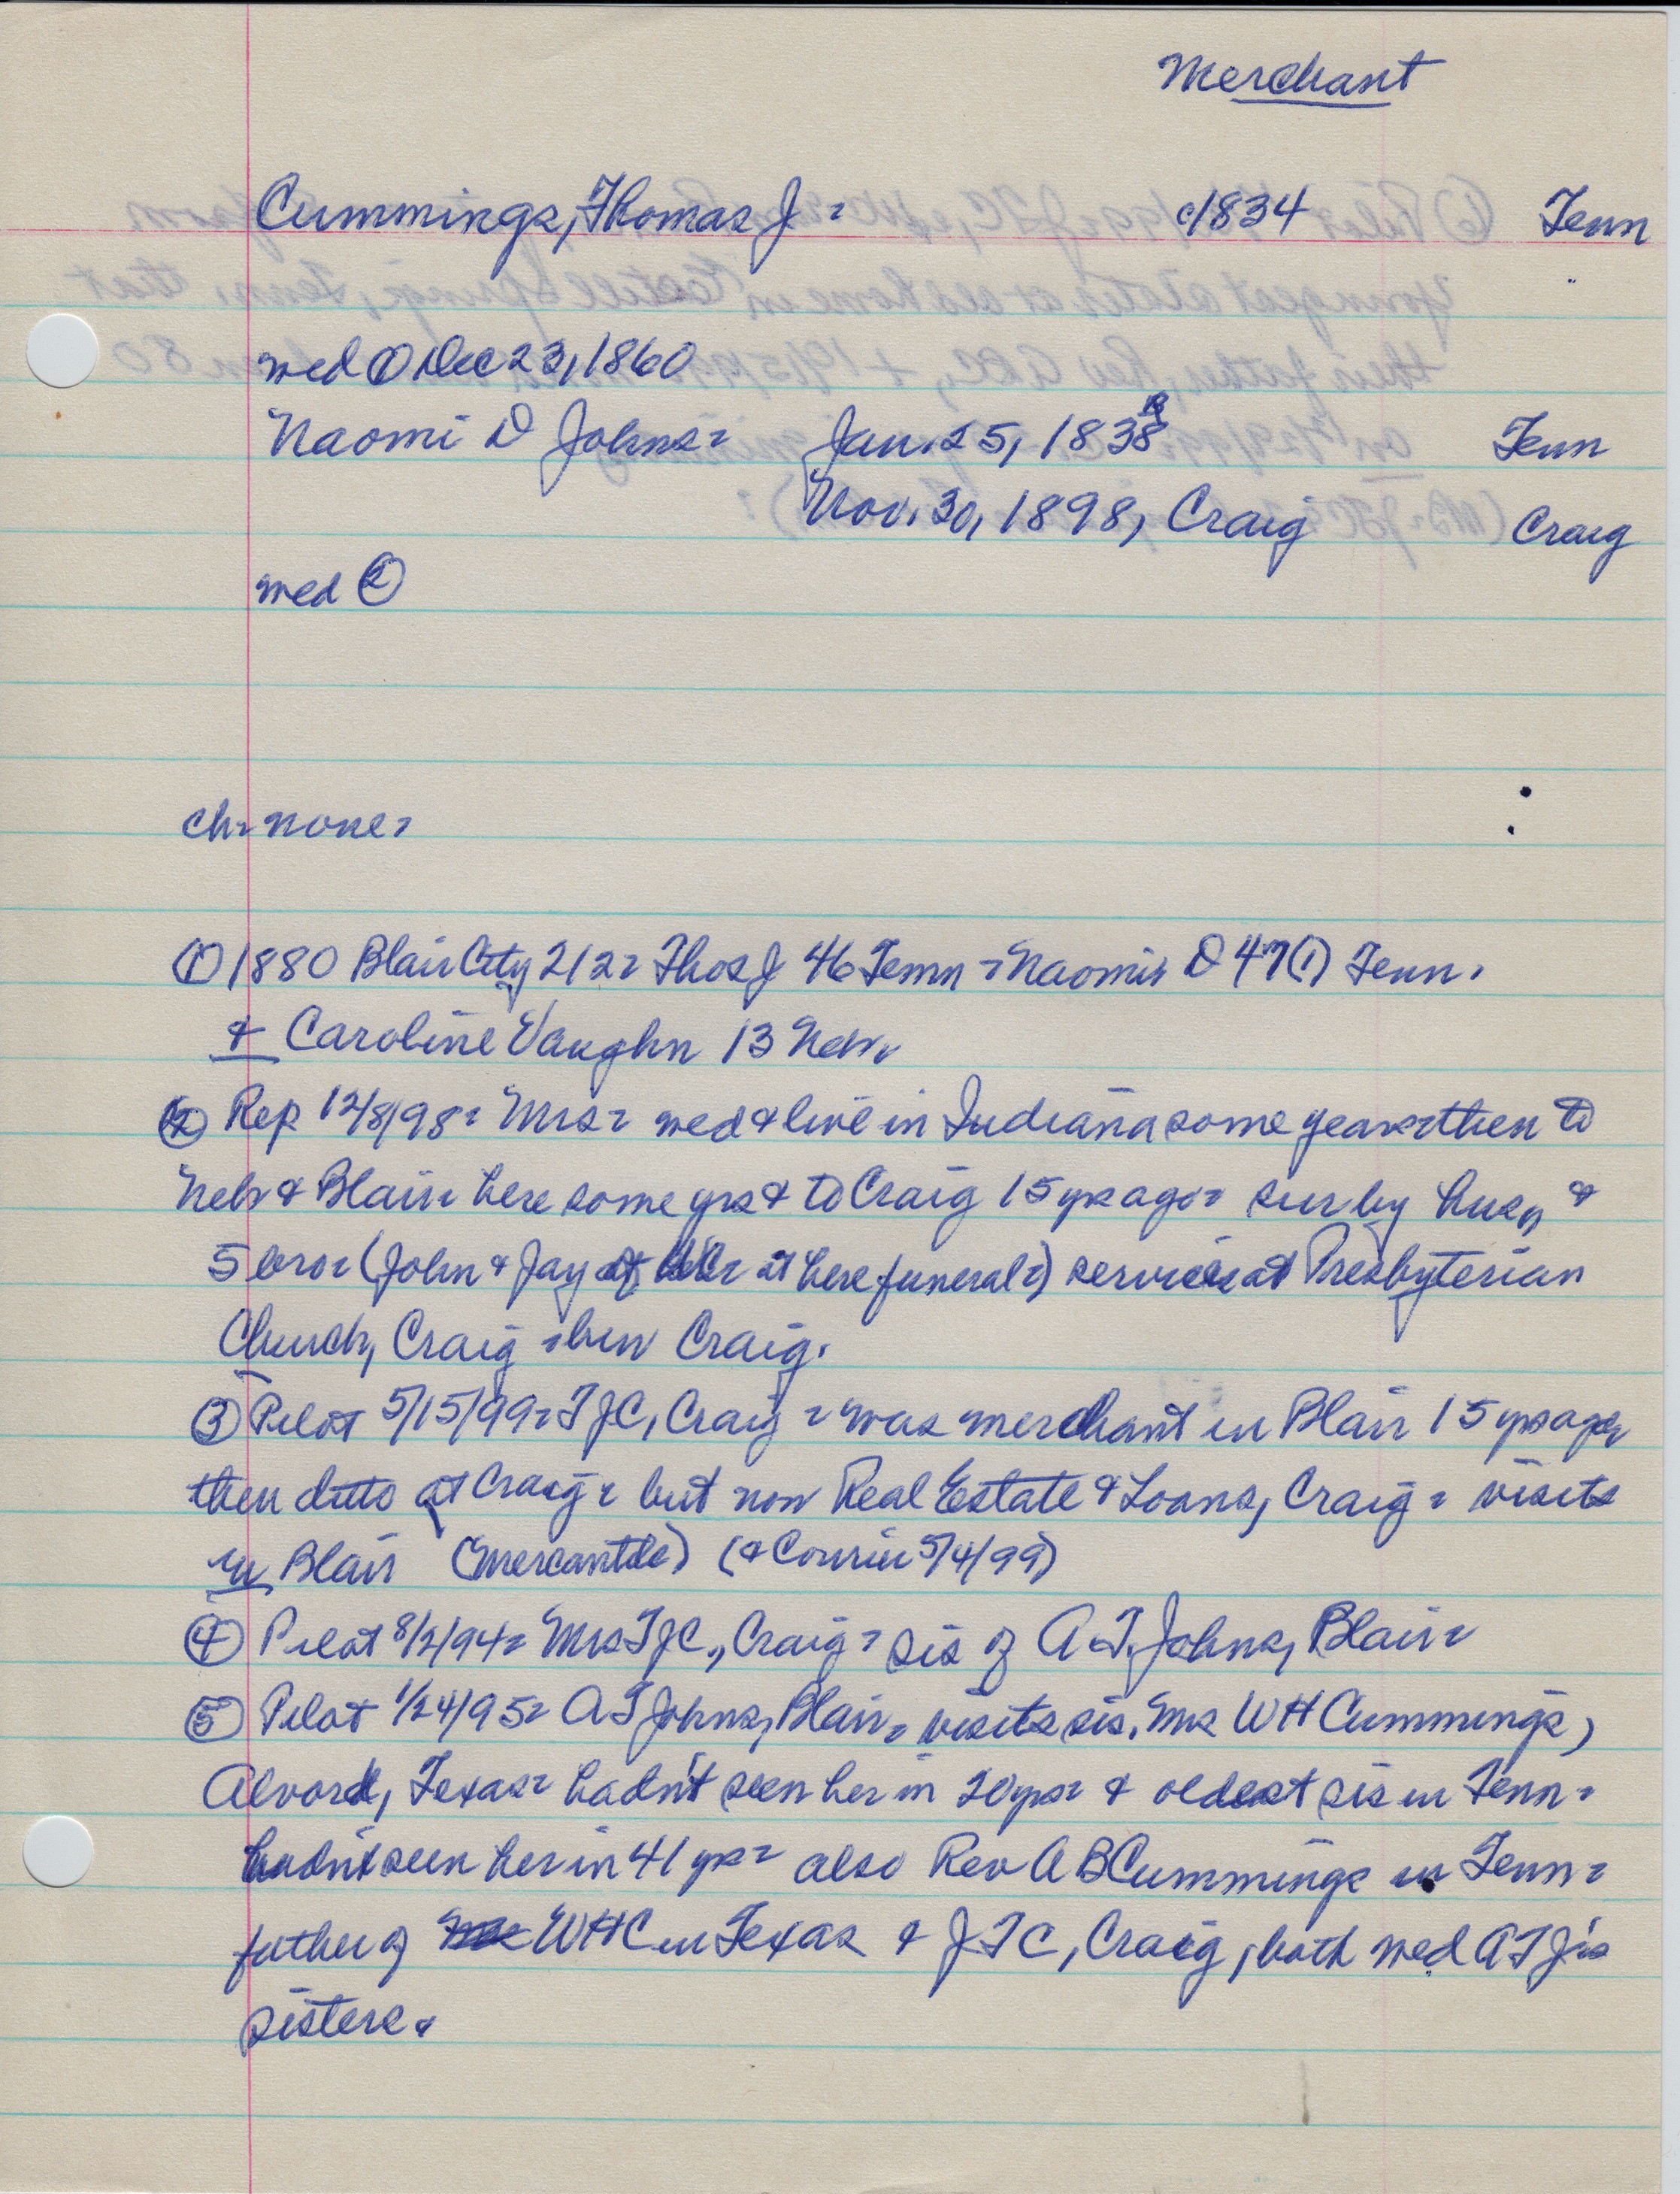 Merchant
Cummings, Thomas J - c1834 Tenn
wed ① Dec 23, 1860
Naomi D Johns - Jan. 25, 1838 Tenn
Nov. 30, 1898, Craig Craig
wed ②
ch - none -
① 1880 Blair City 212 - Thos J 46 Tenn - Naomi D 47(1) Tenn.
& Caroline Vaughn 13 Nebr.
② Rep 12/8/98 - Mrs - wed & live in Indiana some years - then to
Nebr & Blair - here some yrs & to Craig 15 yrs ago - sur by husb &
5 bros (John & Jay at here funeral -) services at Presbyterian
Church, Craig - bur Craig.
③ Pilot 5/15/99 - TJC, Craig - was merchant in Blair 15 yrs ago,
then ditto at Craig - but now Real Estate & Loans, Craig - visits
in Blair (Mercantile) (& Courier 5/4/99)
④ Pilot 8/2/94 - Mrs TJC., Craig - sis of A.T. Johns, Blair -
⑤ Pilot 1/24/95 - AT Johns, Blair - visits sis. Mrs WH Cummings,
Alvord, Texas - hadn't seen her in 20 yrs - & oldest sis in Tenn -
hadn't seen her in 41 yrs - also Rev AB Cummings in Tenn -
father of WHC in Texas & JTC, Craig, both wed ATJ's
sisters.